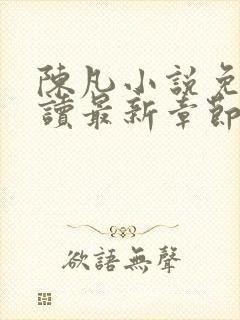 陳凡小説免
讀最新章節
欲語無聲